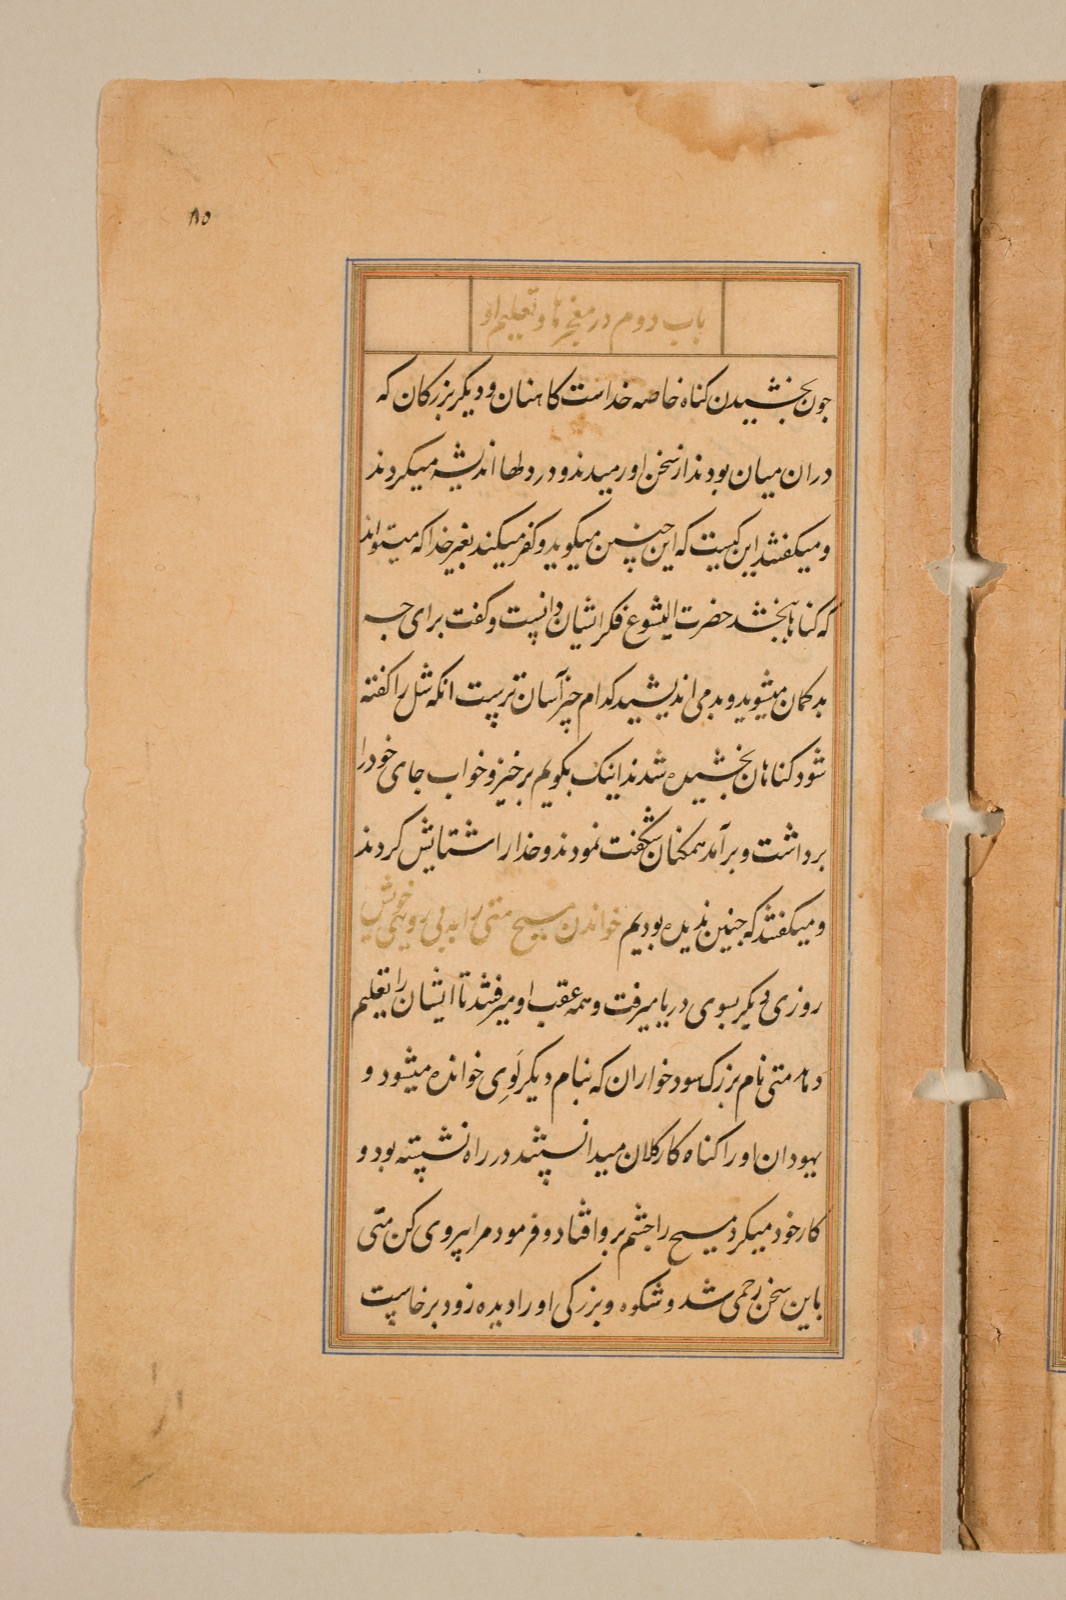 ۸۵
باب دوم در معجزها و تعلیم او
جون بخشیدن کناه خاصه خداست کاهنان و دیکر بزرکان که
دران میان بودند از سخن او رمیدند و در دلها اندیشه میکردند
و میکفتند این کیست که این چنین میکوید و کفر میکند بغیر خدا که میتواند
که کناها بخشد حضرت ایشوع فکر ایشان دانست و کفت برای چه
بدکمان میشوید و بد می اندیشید کدام چیز آسان ترست انکه شل را کفته
شود کناهان بخشیده شدند اینک بکویم برخیز و خواب جای خود را
برداشت و برآمد همکنان شکفت نمودند و خدا را ستایش کردند
و میکفتند که جنین ندیده بودیم خواندن مسیح متی را به پی رویی خویش
روزی دیکر بسوی دریا میرفت و همه عقب او میرفتند تا ایشان را تعلیم
دهد متی نام بزرک سود خواران که بنام دیکر لَوِی خوانده میشود و
یهودان او را کناه کار کلان میدانستند در راه نشسته بود و
کار خود میکرد مسیح را جشم برو افتاد و فرمود مرا پیروی کن متی
باین سخن زخمی شد و شکوه و بزرکی او را دیده زود برخاست